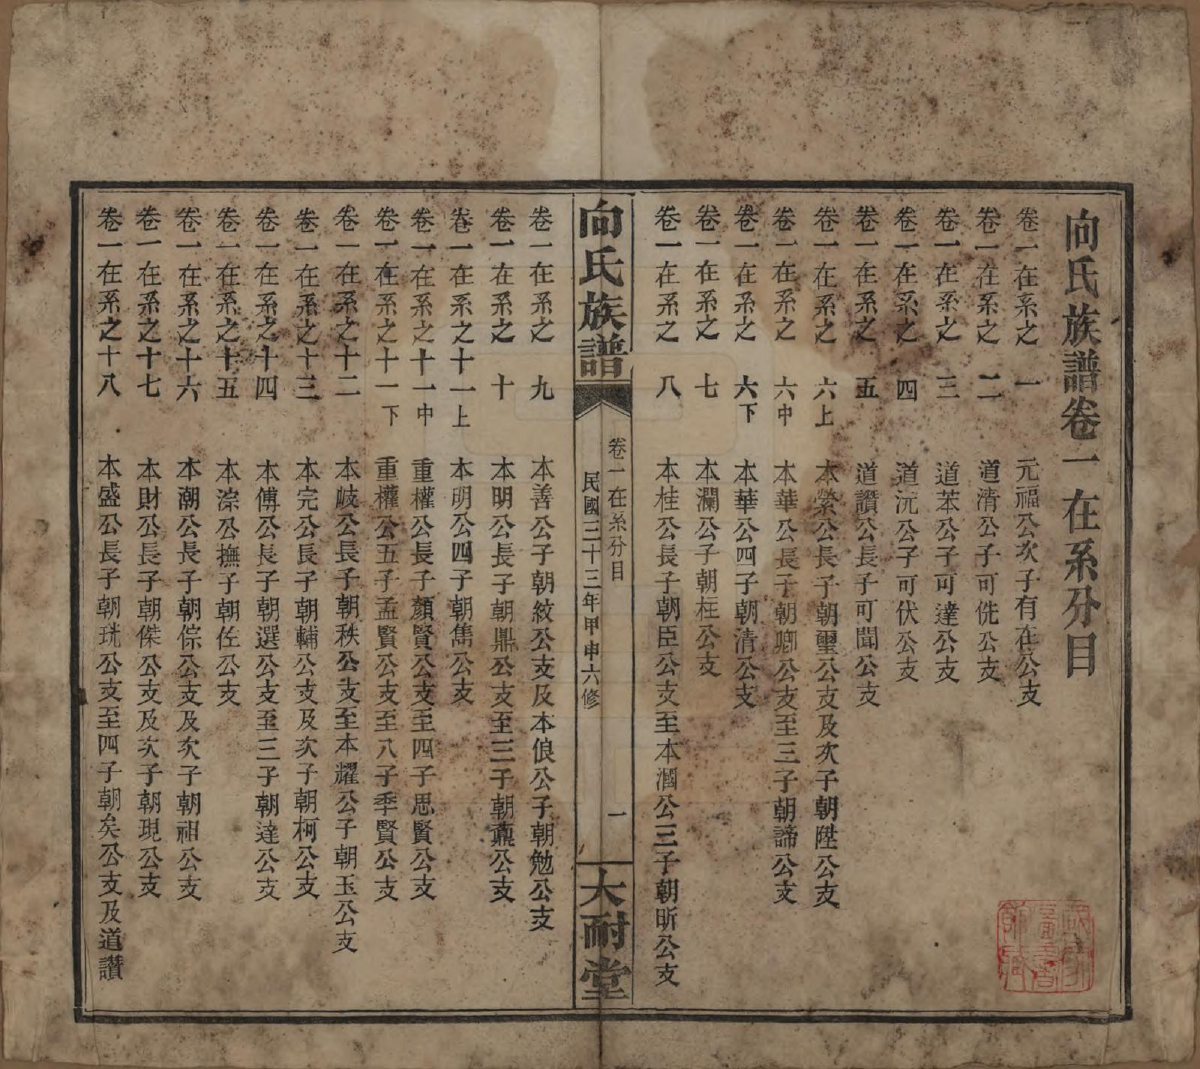 向氏族譜卷一在系分目
卷一在系之一 元福公次子有在公支
卷一在系之二 道清公子可侁公支
卷一在系之三 道苯公子可達公支
卷一在系之四 道沅公子可伏公支
卷一在系之五 道讚公長子可聞公支
卷一在系之六上 本縈公長子朝璽公支及次子朝陞公支
卷一在系之六中 本華公長子朝卿公支至三子朝諦公支
卷一在系之六下 本華公四子朝清公支
卷一在系之七 本瀾公子朝柱公支
卷一在系之八 本桂公長子朝臣公支至本溷公三子朝昕公支
向氏族譜 卷一在系分目 一
民國三十三年甲申六修
大耐堂
卷一在系之九 本善公子朝紋公支及本俍公子朝勉公支
卷一在系之十 本明公長子朝鼎公支至三子朝鼒公支
卷一在系之十一上 本明公四子朝雋公支
卷一在系之十一中 重權公長子顏賢公支至四子思賢公支
卷一在系之十一下 重權公五子孟賢公支至八子季賢公支
卷一在系之十二 本岐公長子朝秩公支至本耀公子朝玉公支
卷一在系之十三 本完公長子朝輔公支及次子朝柯公支
卷一在系之十四 本傅公長子朝選公支至三子朝達公支
卷一在系之十五 本淙公撫子朝任公支
卷一在系之十六 本潮公長子朝倧公支及次子朝祖公支
卷一在系之十七 本財公長子朝傑公支及次子朝現公支
卷一在系之十八 本盛公長子朝珖公支至四子朝矣公支及道讚